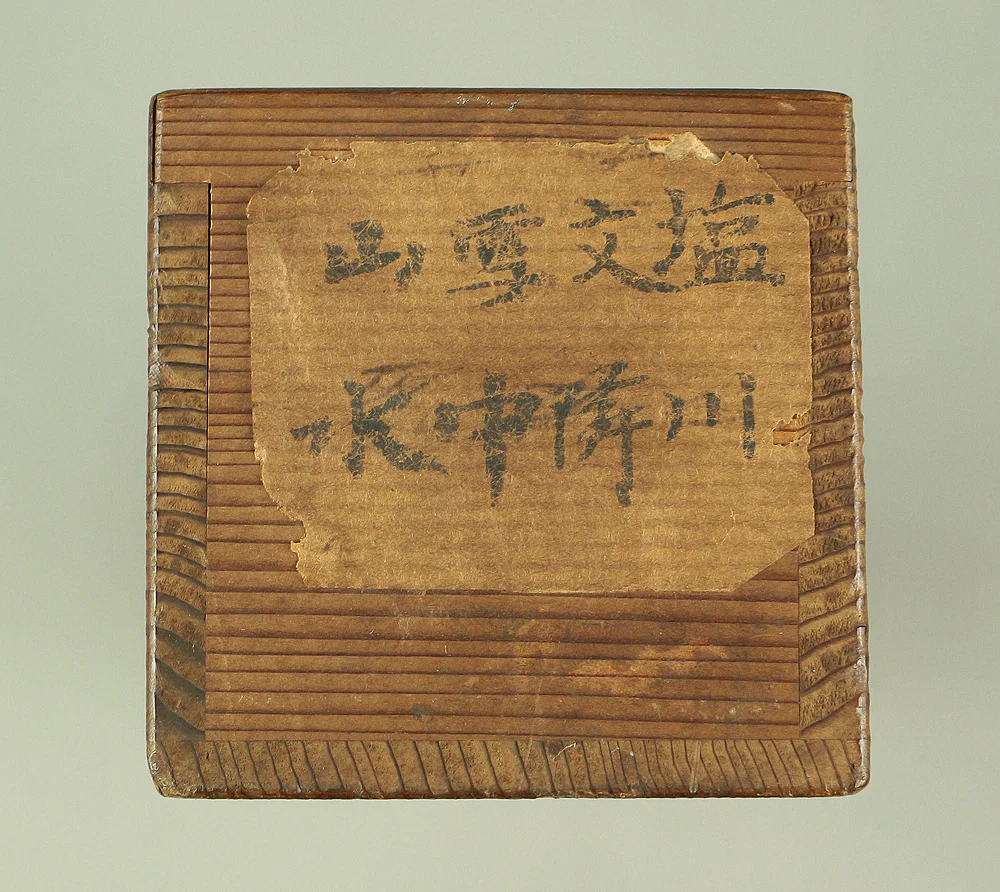 塩川
文隣
雪中
山水